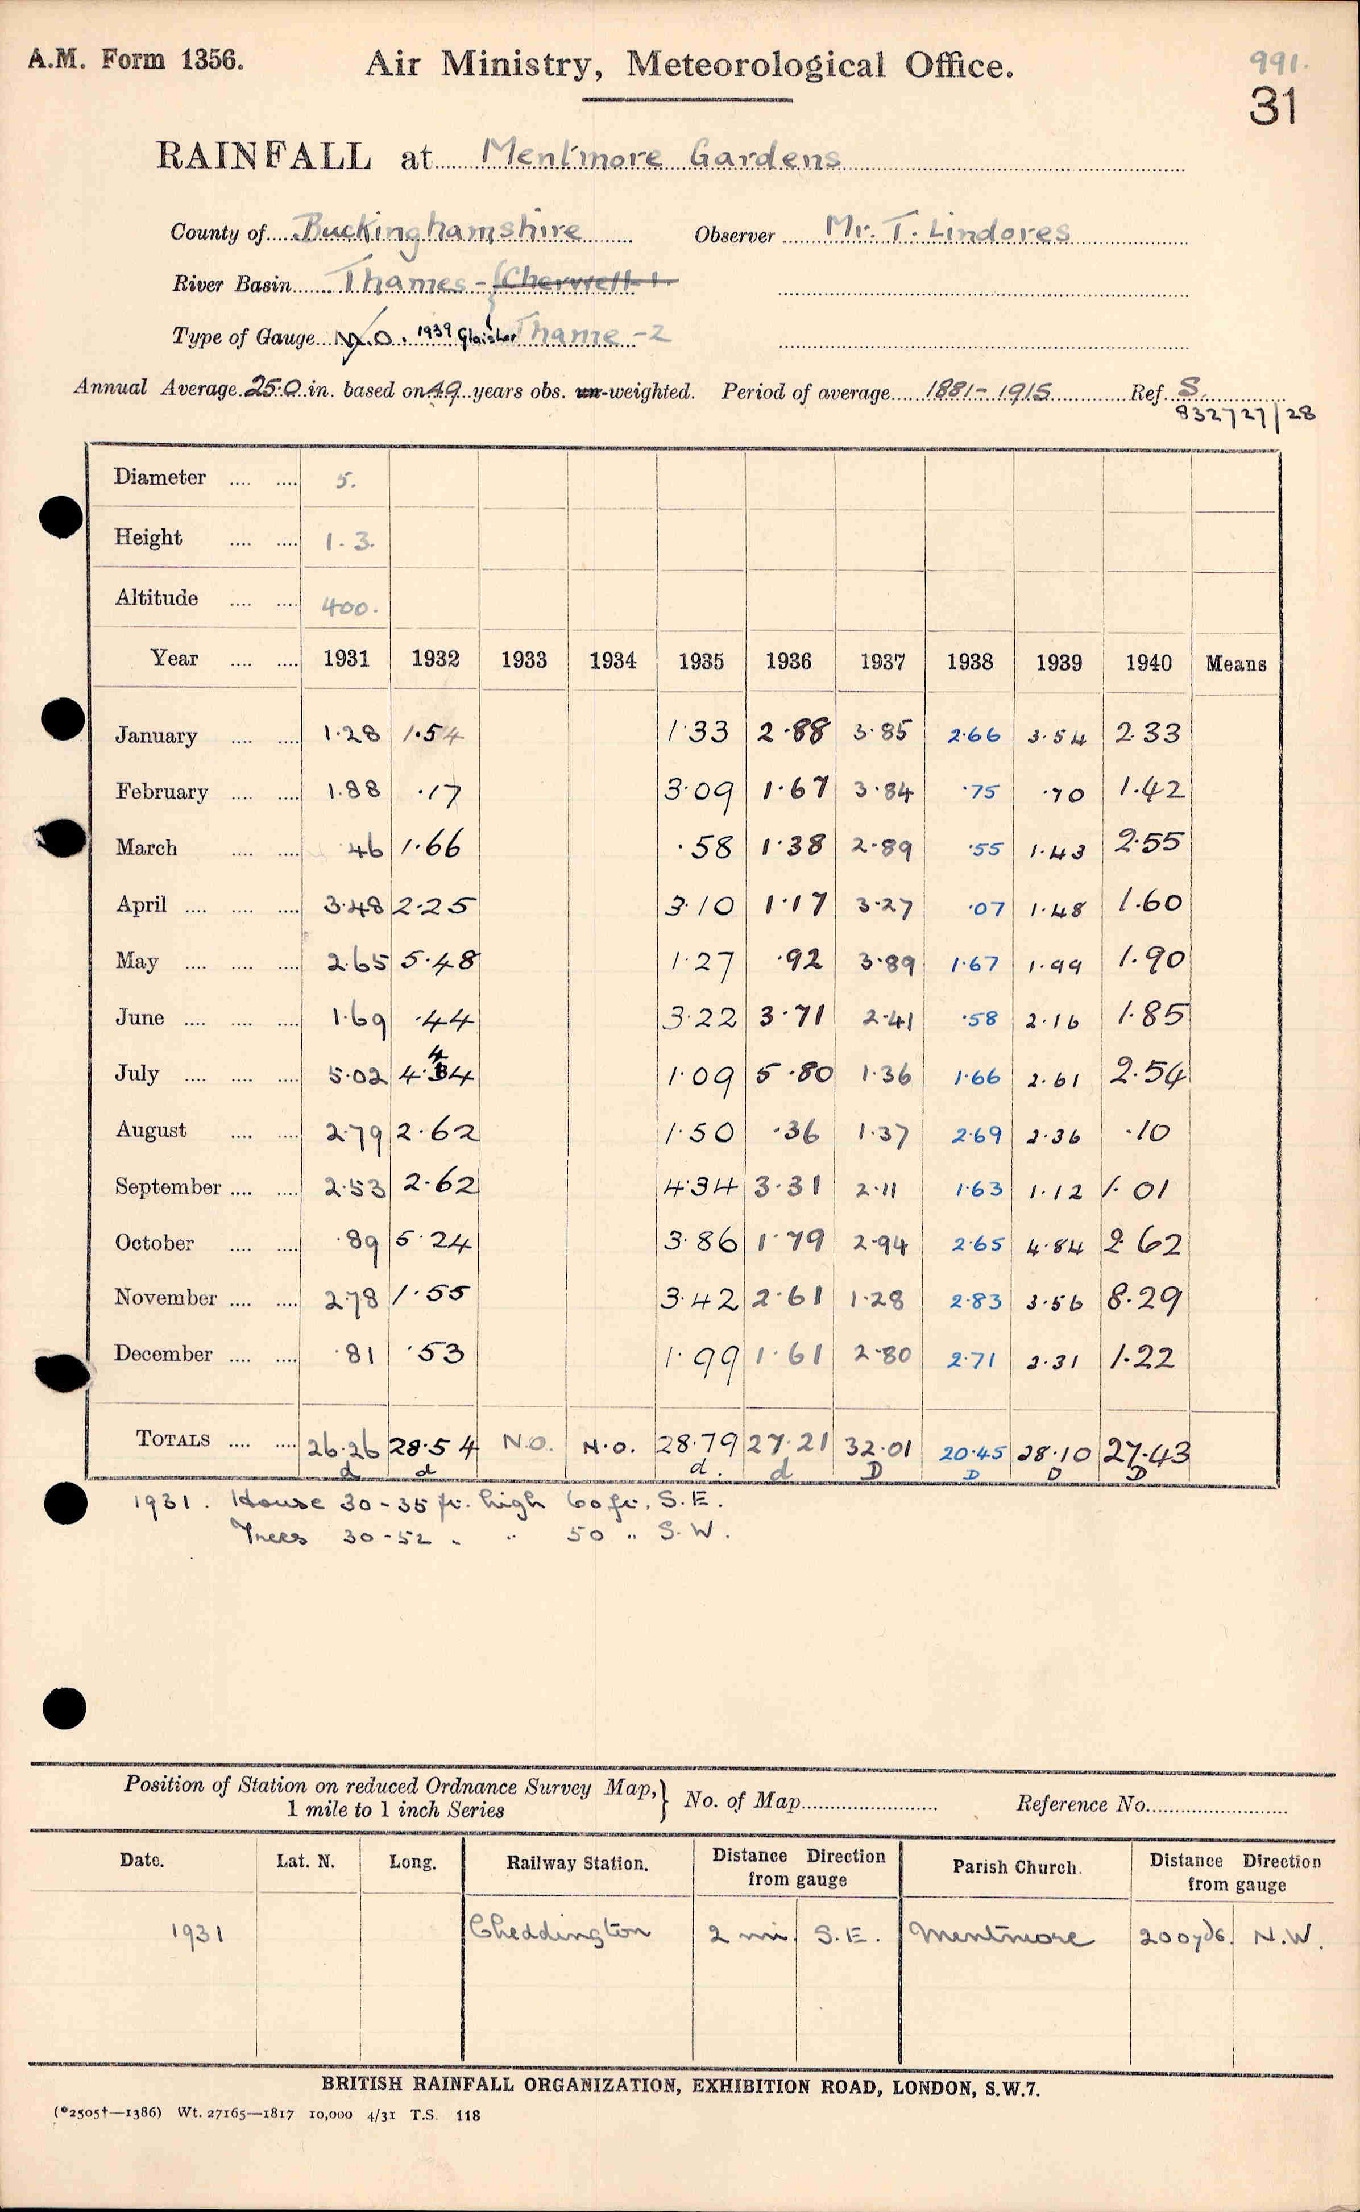 A.M. Form 1356.
Air Ministry, Meteorological Office.
991.
31
RAINFALL at Mentmore Gardens
County of Buckinghamshire Observer Mr. T. Lindores
River Basin Thames - Cherwell - 1
Type of Gauge M.O. 1939 Glaisher Thame - 2
Annual Average 25.0 in. based on 49 years obs. un-weighted. Period of average 1881-1915 Ref. S.
832727/28
Diameter .... .... 5.
Height .... .... 1. 3.
Altitude .... .... 400.
Year .... .... 1931 1932 1933 1934 1935 1936 1937 1938 1939 1940 Means
January .... .... 1.28 1.54 1.33 2.88 3.85 2.66 3.54 2.33
February .... .... 1.88 .17 3.09 1.67 3.84 .75 .70 1.42
March .... .... .46 1.66 .58 1.38 2.89 .55 1.43 2.55
April .... .... .... 3.48 2.25 3.10 1.17 3.27 .07 1.48 1.60
May .... .... .... 2.65 5.48 1.27 .92 3.89 1.67 1.99 1.90
June .... .... .... 1.69 .44 3.22 3.71 2.41 .58 2.16 1.85
July .... .... .... 5.02 4.44 1.09 5.80 1.36 1.66 2.61 2.54
August .... .... 2.79 2.62 1.50 .36 1.37 2.69 2.36 .10
September .... .... 2.53 2.62 4.34 3.31 2.11 1.63 1.12 1.01
October .... .... .89 5.24 3.86 1.79 2.94 2.65 4.84 2.62
November .... .... 2.78 1.55 3.42 2.61 1.28 2.83 3.56 8.29
December .... .... .81 .53 1.99 1.61 2.80 2.71 2.31 1.22
TOTALS .... .... 26.26 28.54 N.O. N.O. 28.79 27.21 32.01 20.45 28.10 27.43
d d d. d D D D D
1931. House 30-35 ft. high 60 ft. S.E.
Trees 30-52 " " 50 " S.W.
Position of Station on reduced Ordnance Survey Map, 1 mile to 1 inch Series } No. of Map Reference No.
Date. Lat. N. Long. Railway Station. Distance Direction from gauge Parish Church. Distance Direction from gauge
1931 Cheddington 2 mi. S.E. Mentmore 200 yds. N.W.
BRITISH RAINFALL ORGANIZATION, EXHIBITION ROAD, LONDON, S.W.7.
(*2505†—1386) Wt. 27165—1817 10,000 4/31 T.S. 118